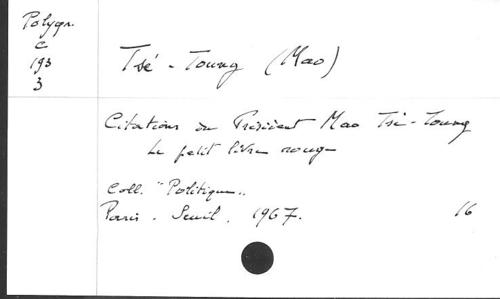 Polygr.
C
193
3
Tsé-Toung (Mao)
Citations du Président Mao Tsé-Toung
Le petit livre rouge
Coll. "Politique"
Paris. Seuil, 1967. 16